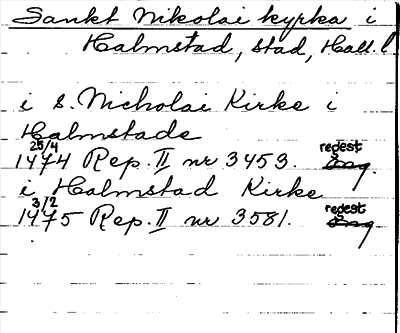 Sankt Nikolai kyrka i
Halmstad, stad, Hall. l.
i S. Nicholai Kirke i
Halmstade
25/4
1474 Rep. II nr 3453. regest
i Halmstad Kirke
3/2
1475 Rep. II nr 3581. regest